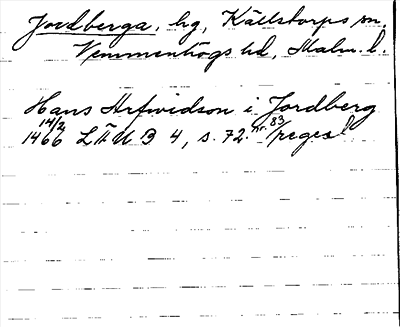 Jordberga, hg, Källstorps sn,
Vemmenhögs hd, Malm. l.
Hans Arfwidson i Jordberg
14/2 1466 LÄU B 4, s. 72. nr. 83 /reges/